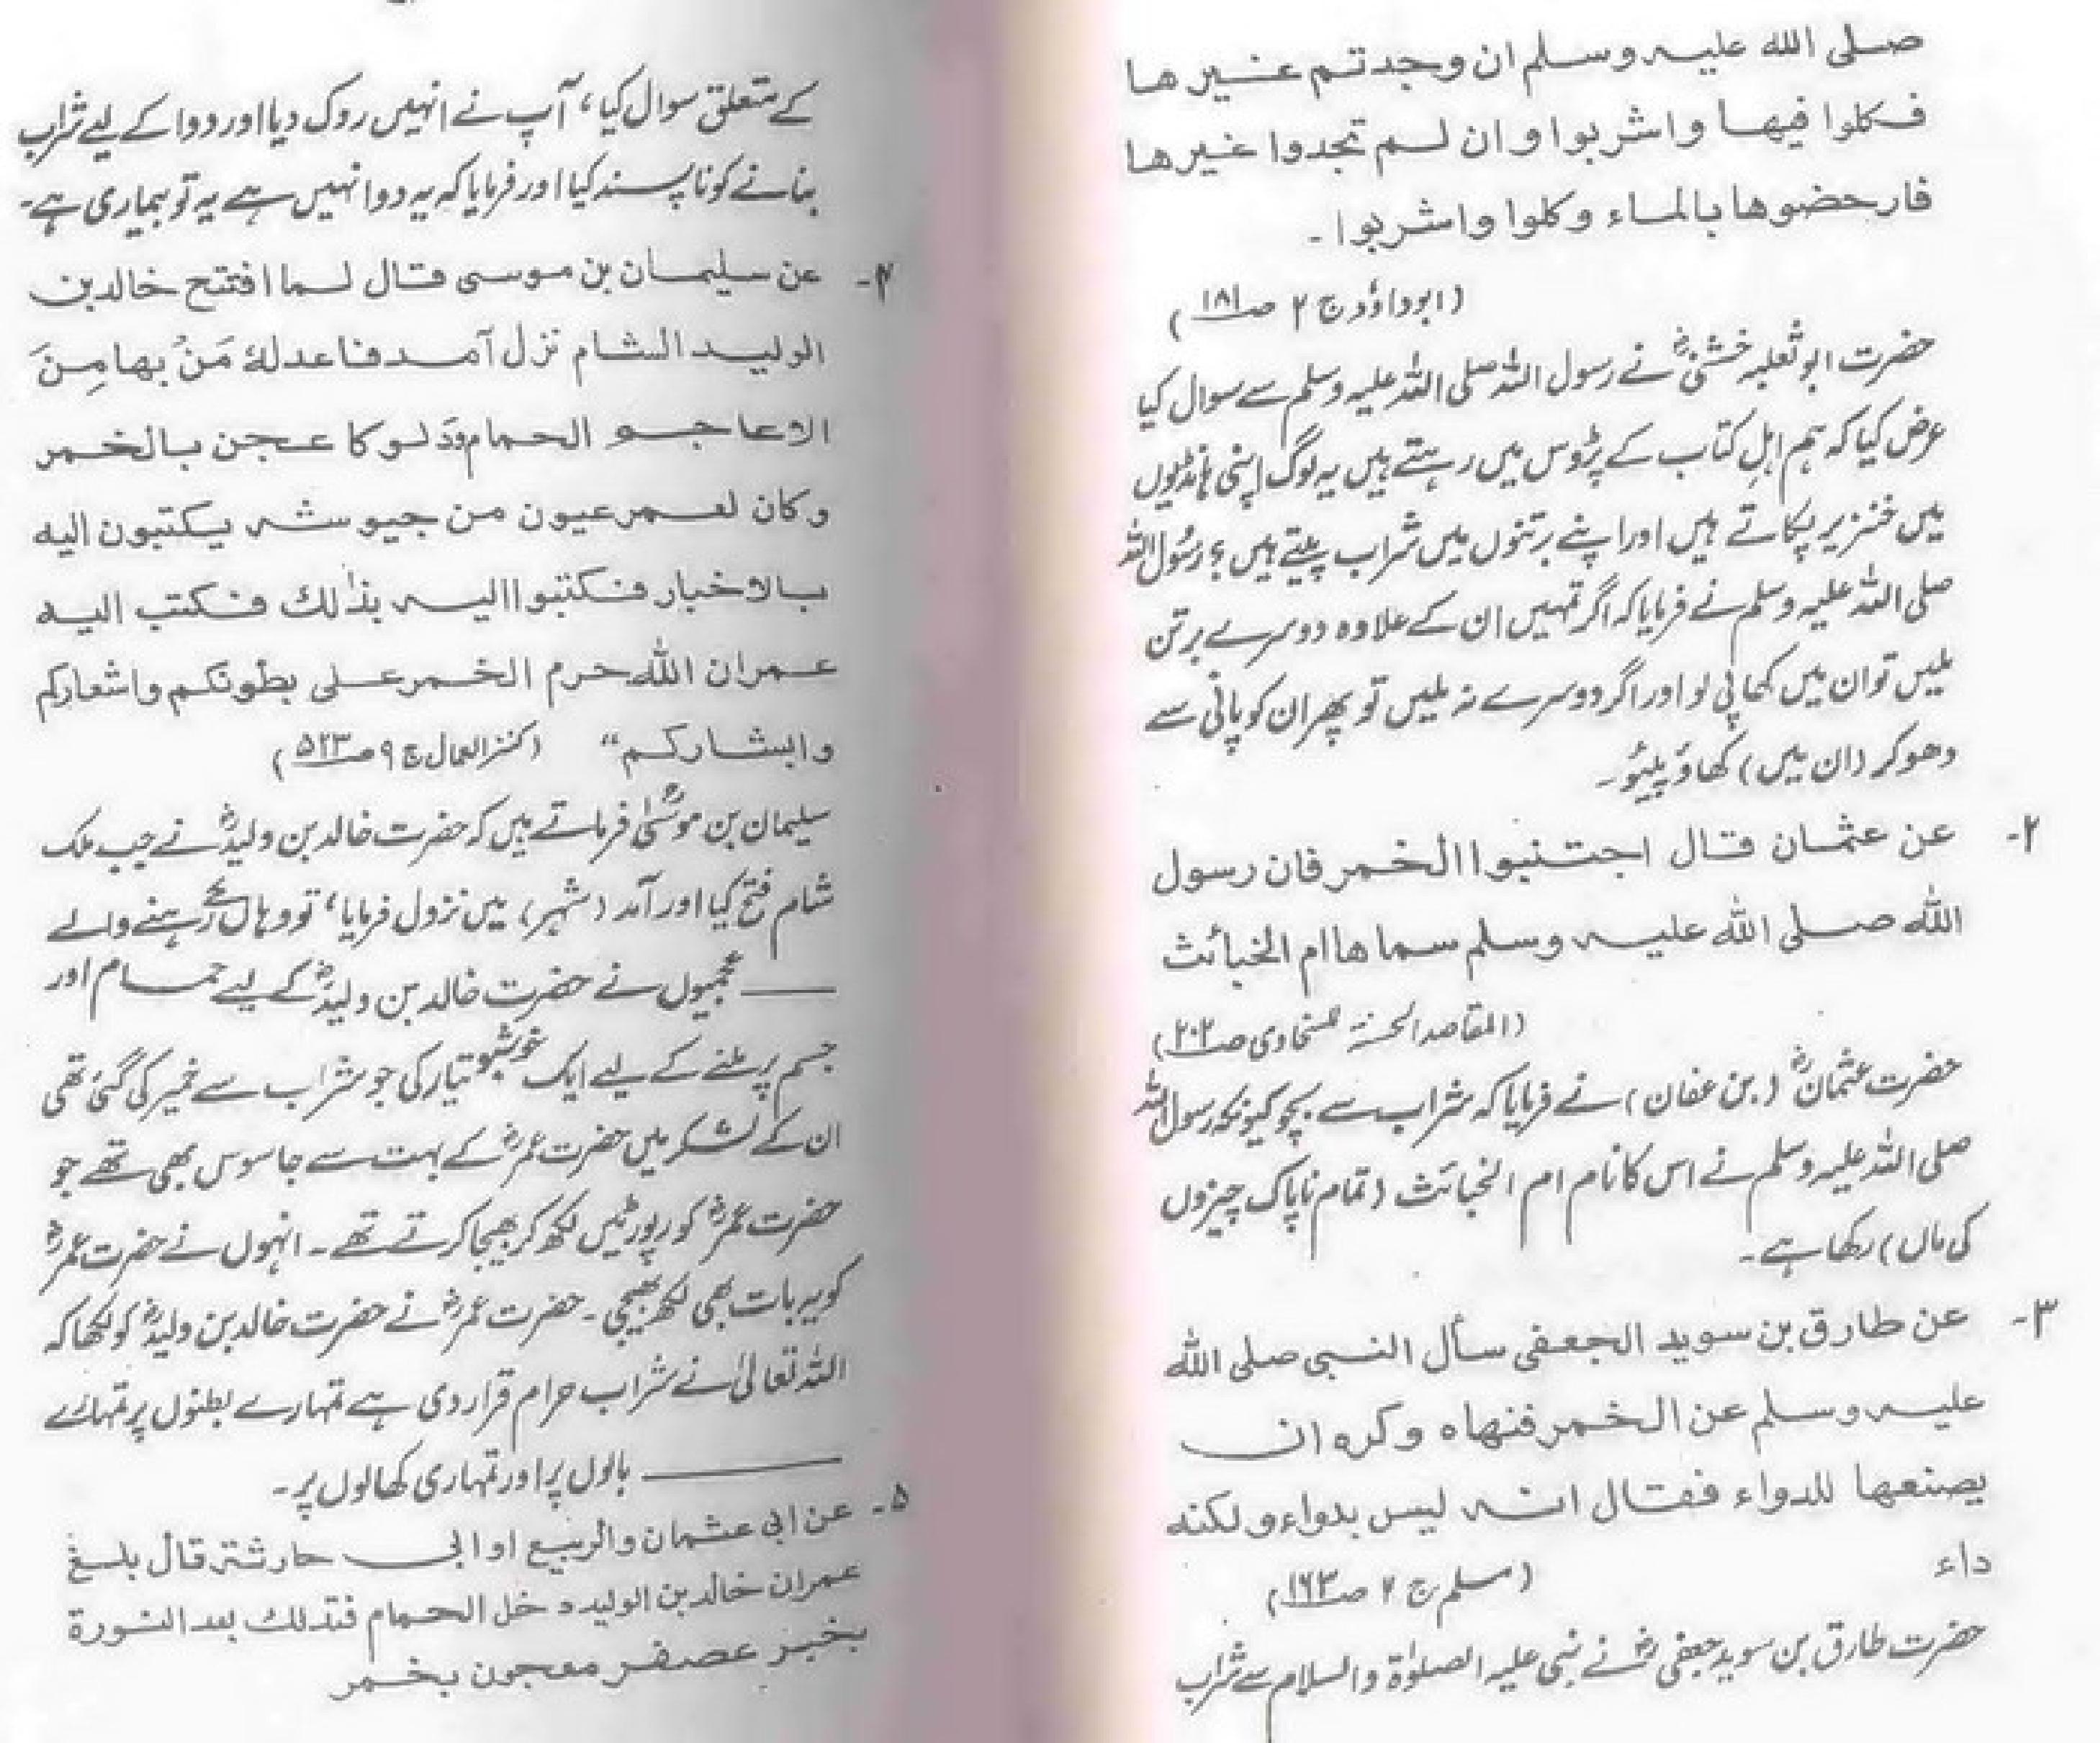 صلی الله علیه وسلم ان وجدتم غیرها
فکلوا فیها واشربوا وان لم تجدوا غیرها
فارحضوها بالماء وکلوا واشربوا ۔
(ابوداؤد ج ۲ ص۱۸۱)
حضرت ابو ثعلبہ خشنیؓ نے رسول اللہ صلی اللہ علیہ وسلم سے سوال کیا
عرض کیا کہ ہم اہلِ کتاب کے پڑوس میں رہتے ہیں یہ لوگ اپنی ہانڈیوں
میں خنزیر پکاتے ہیں اور اپنے برتنوں میں شراب پیتے ہیں ؟ رسُول اللہ
صلی اللہ علیہ وسلم نے فرمایا کہ اگر تمہیں ان کے علاوہ دوسرے برتن
ملیں تو ان میں کھا پی لو اور اگر دوسرے نہ ملیں تو پھر ان کو پانی سے
دھو کر (ان میں) کھاؤ پیئو۔
۲- عن عثمان قال اجتنبوا الخمر فان رسول
الله صلی الله علیه وسلم سماها ام الخبائث
(المقاصد الحسنۃ للسخاوی ص۲۰۲)
حضرت عثمانؓ (بن عفان) نے فرمایا کہ شراب سے بچو کیونکہ رسول اللہ
صلی اللہ علیہ وسلم نے اس کا نام ام الخبائث (تمام ناپاک چیزوں
کی ماں) رکھا ہے۔
۳- عن طارق بن سوید الجعفی سأل النبی صلی الله
علیه وسلم عن الخمر فنهاه وکره ان
یصنعها للدواء فقال انه لیس بدواء ولکنه
داء
(مسلم ج ۲ ص۱۶۳)
حضرت طارق بن سوید جعفیؓ نے نبی علیہ الصلوٰۃ والسلام سے شراب
کے متعلق سوال کیا، آپ نے انہیں روک دیا اور دوا کے لیے شراب
بنانے کو ناپسند کیا اور فرمایا کہ یہ دوا نہیں ہے یہ تو بیماری ہے۔
۴- عن سلیمان بن موسی قال لما افتتح خالد بن
الولید الشام نزل آمد فاعدلهٗ مَنْ بها مِنَ
الاعاجـو الحمام ودَلوکا عجن بالخمر
وکان لعمر عیون من جیوشه یکتبون الیه
بالاخبار فکتبوا الیه بذٰلك فکتب الیه
عمر ان الله حرم الخمر علی بطونکم واشعارکم
وابشارکم“ (کنز العمال ج ۹ ص۵۲۳)
سلیمان بن موسیٰؒ فرماتے ہیں کہ حضرت خالد بن ولیدؓ نے جب ملک
شام فتح کیا اور آمد (شہر) میں نزول فرمایا، تو وہاں کے رہنے والے
عجمیوں نے حضرت خالد بن ولیدؓ کے لیے حمام اور
جسم پر ملنے کے لیے ایک خوشبو تیار کی جو شراب سے خمیر کی گئی تھی
ان کے لشکر میں حضرت عمرؓ کے بہت سے جاسوس بھی تھے جو
حضرت عمرؓ کو رپورٹیں لکھ کر بھیجا کرتے تھے۔ انہوں نے حضرت عمرؓ
کو یہ بات بھی لکھ بھیجی۔ حضرت عمرؓ نے حضرت خالد بن ولیدؓ کو لکھا کہ
اللہ تعالیٰ نے شراب حرام قرار دی ہے تمہارے بطنوں پر تمہارے
بالوں پر اور تمہاری کھالوں پر۔
۵- عن ابی عثمان والربیع او ابی حارثۃ قال بلغ
عمر ان خالد بن الولید دخل الحمام فتدلك بعد النورة
بخبز عصفر معجون بخمر